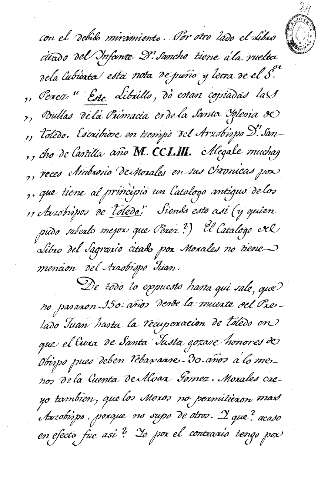 con el debido miramiento. Por otro lado el Libro
citado del Infante Dn. Sancho tiene á la vuelta
de la Cubierta esta nota de puño y letra de el Sr.
„ Perez." Este Librillo, dó estan copiadas las
„ Bullas de la Primacia es de la Santa Yglesia de
„ Toledo. Escribiose en tiempo del Arzobispo Dn. San-
„ cho de Castilla año M.CCLIII. Alegale muchas
„ veces Ambrosio de Morales en sus chronicas por
„ que tiene al principio un Catalogo antiguo de los
„ Arzobispos de Toledo." Siendo esto asi (y quien
pudo saberlo mejor que Perez?) El Catalogo del
Libro del Sagrario citado por Morales no tiene
mencion del Arzobispo Juan.
De todo lo expuesto hasta qui sale, que
no pasaron 150. años desde la muerte del Pre-
lado Juan hasta la recuperacion de Toledo en
que el Cura de Santa Justa gozase honores de
Obispo pues deben rebaxarse 30. años á lo me-
nos de la Cuenta de Alvar Gomez. Morales cre-
yo tambien, que los Moros no permitieron mas
Arzobispo, porque no supo de otros. Y que? acaso
en efecto fue asi? Yo por el contrario tengo por